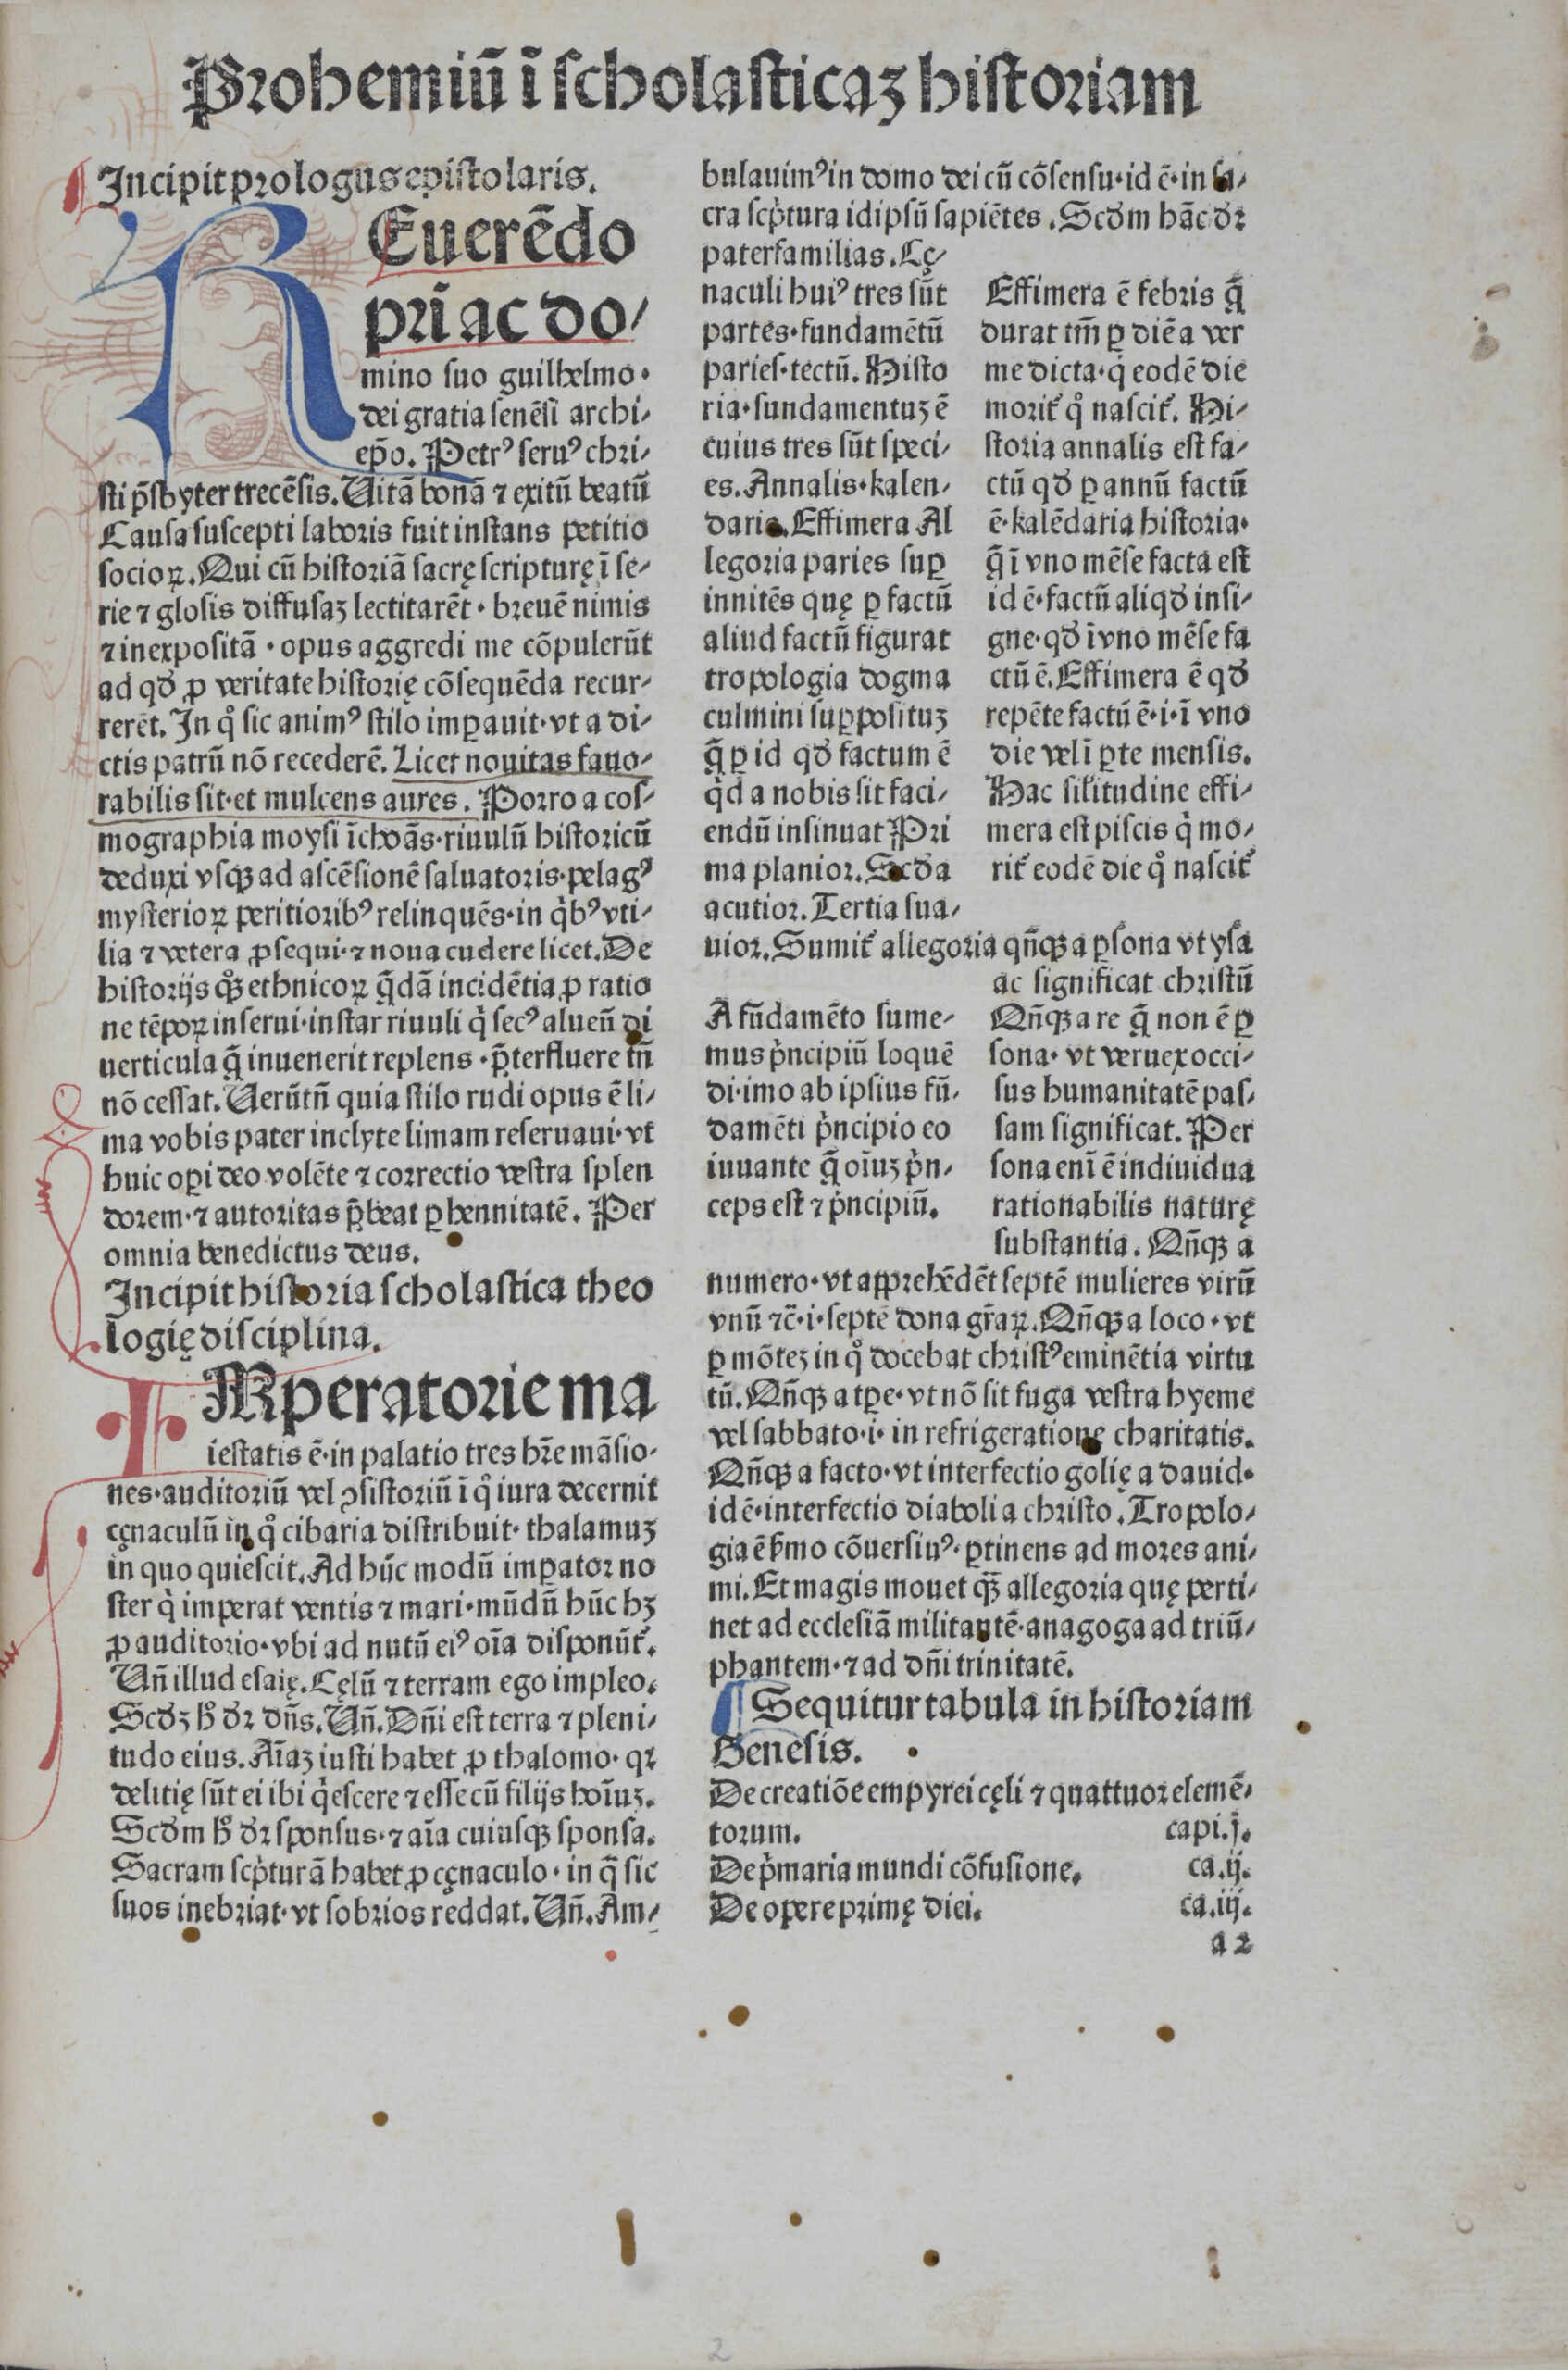 Prohemiū ī scholasticaꝫ historiam
Incipit prologus epistolaris.
REuerēdo
pr̄i ac do⸗
mino suo guilhelmo·
dei gratia senēsi archi⸗
ep̄o. Petrꝰ seruꝰ chri⸗
sti p̄sbyter trecēsis. Uitā bonā ⁊ exitū beatū
Causa suscepti laboris fuit instans petitio
socioꝝ. Qui cū historiā sacrę scripturę ī se⸗
rie ⁊ glosis diffusaꝫ lectitarēt · breuē nimis
⁊ inexpositā · opus aggredi me cōpulerūt
ad qđ ꝓ veritate historię cōsequēda recur⸗
rerēt. In qͦ sic animꝰ stilo imꝑauit· vt a di⸗
ctis patrū nō recederē. Licet nouitas fauo⸗
rabilis sit· et mulcens aures. Porro a cos⸗
mographia moysi īchoās· riuulū historicū
deduxi vsqꝫ ad ascēsionē saluatoris· pelagꝰ
mysterioꝝ peritioribꝰ relinquēs· in qͥbꝰ vti⸗
lia ⁊ vetera ꝓsequi· ⁊ noua cudere licet. De
historijs qꝫ ethnicoꝝ q̄dā incidētia ꝓ ratio
ne tēpoꝝ inserui· instar riuuli qͥ secꝰ alueū di
uerticula q̄ inuenerit replens · p̄terfluere tn̄
nō cessat. Uerūtn̄ quia stilo rudi opus ē li⸗
ma vobis pater inclyte limam reseruaui· vt
huic oꝑi deo volēte ⁊ correctio vestra splen
dorem· ⁊ autoritas p̄beat ꝑhennitatē. Per
omnia benedictus deus.
Incipit historia scholastica theo
logię disciplina.
IMperatorie ma
iestatis ē· in palatio tres hr̄e māsio⸗
nes· auditoriū vel ꝯsistoriū ī qͦ iura decernit
cęnaculū in qͦ cibaria distribuit· thalamuꝫ
in quo quiescit. Ad hūc modū imꝑator no
ster qͥ imperat ventis ⁊ mari· mūdū hūc hꝫ
ꝓ auditorio· vbi ad nutū eiꝰ oīa disponūt᷑.
Un̄ illud esaię. Cęlū ⁊ terram ego impleo.
Scđꝫ hͦ dꝛ dn̄s. Un̄. Dn̄i est terra ⁊ pleni⸗
tudo eius. Aīaꝫ iusti habet ꝓ thalomo· qꝛ
delitię sūt ei ibi qͥescere ⁊ esse cū filijs hoīuꝫ.
Scđm hͦ dꝛ sponsus· ⁊ aīa cuiusqꝫ sponsa.
Sacram scpͥturā habet ꝓ cęnaculo · in q̄ sic
suos inebriat· vt sobrios reddat. Un̄. Am⸗
bulauimꝰ in domo dei cū cōsensu· id ē· in sa⸗
cra scpͥtura idipsū sapiētes. Scđm hāc dꝛ
paterfamilias. Cę⸗
naculi huiꝰ tres sūt
partes· fundamētū
paries· tectū. Histo
ria· fundamentuꝫ ē
cuius tres sūt speci⸗
es. Annalis· kalen⸗
daria. Effimera Al
legoria paries suꝑ
innitēs quę ꝑ factū
aliud factū figurat
tropologia dogma
culmini suppositus
q̄ ꝑ id qđ factum ē
qͥd a nobis sit faci⸗
endū insinuat Pri
ma planior. Scđa
acutior. Tertia sua⸗
Effimera ē febris q̄
durat tm̄ ꝑ diē a ver
me dicta· qͥ eodē die
morit᷑ qͦ nascit᷑. Hi⸗
storia annalis est fa⸗
ctū qđ ꝑ annū factū
ē· kalēdaria historia·
q̄ ī vno mēse facta est
id ē· factū aliqđ insi⸗
gne· qđ ī vno mēse fa
ctū ē. Effimera ē qđ
repēte factū ē· i· ī vno
die vel ī ꝑte mensis.
Hac sil̄itudine effi⸗
mera est piscis qͥ mo⸗
rit᷑ eodē die qͦ nascit᷑
uior. Sumit᷑ allegoria qn̄qꝫ a ꝑsona vt ysa
ac significat christū
A fūdamēto sume⸗
mus pͥncipiū loquē
di· imo ab ipsius fū⸗
damēti pͥncipio eo
iuuante q̄ oīuꝫ pͥn⸗
ceps est ⁊ pͥncipiū.
Qn̄qꝫ a re q̄ non ē ꝑ
sona· vt veruex occi⸗
sus humanitatē pas⸗
sam significat. Per
sona enī ē indiuidua
rationabilis naturę
substantia. Qn̄qꝫ a
numero· vt apprehēdēt septē mulieres virū
vnū ⁊c̄· i· septē dona gr̄aꝝ. Qn̄qꝫ a loco · vt
ꝑ mōteꝫ in qͦ docebat christꝰ eminētia virtu
tū. Qn̄qꝫ a tꝑe· vt nō sit fuga vestra hyeme
vel sabbato· i· in refrigeratione charitatis.
Qn̄qꝫ a facto· vt interfectio golię a dauid·
id ē· interfectio diaboli a christo. Tropolo⸗
gia ē ẜmo cōuersiuꝰ· ꝑtinens ad mores ani⸗
mi. Et magis mouet qꝫ̄ allegoria quę perti⸗
net ad ecclesiā militantē· anagoga ad triū⸗
phantem· ⁊ ad dn̄i trinitatē.
Sequitur tabula in historiam
Genesis.
De creatiōe empyrei cęli ⁊ quattuor elemē⸗
torum. capi. j.
De pͥmaria mundi cōfusione. ca. ij.
De opere primę diei. ca. iij.
a 2
2